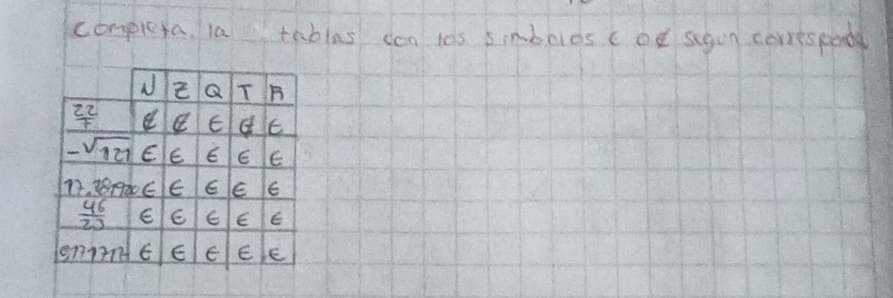 completa, la tablas con los simbolos ∈ o ∉ segun corresponda
N Z Q T R
22/7 ∉ ∉ ∈ ∉ ∈
-√121 ∈ ∈ ∈ ∈ ∈
∈ ∈ ∈ ∈ ∈
46/23 ∈ ∈ ∈ ∈ ∈
∈ ∈ ∈ ∈ ∈